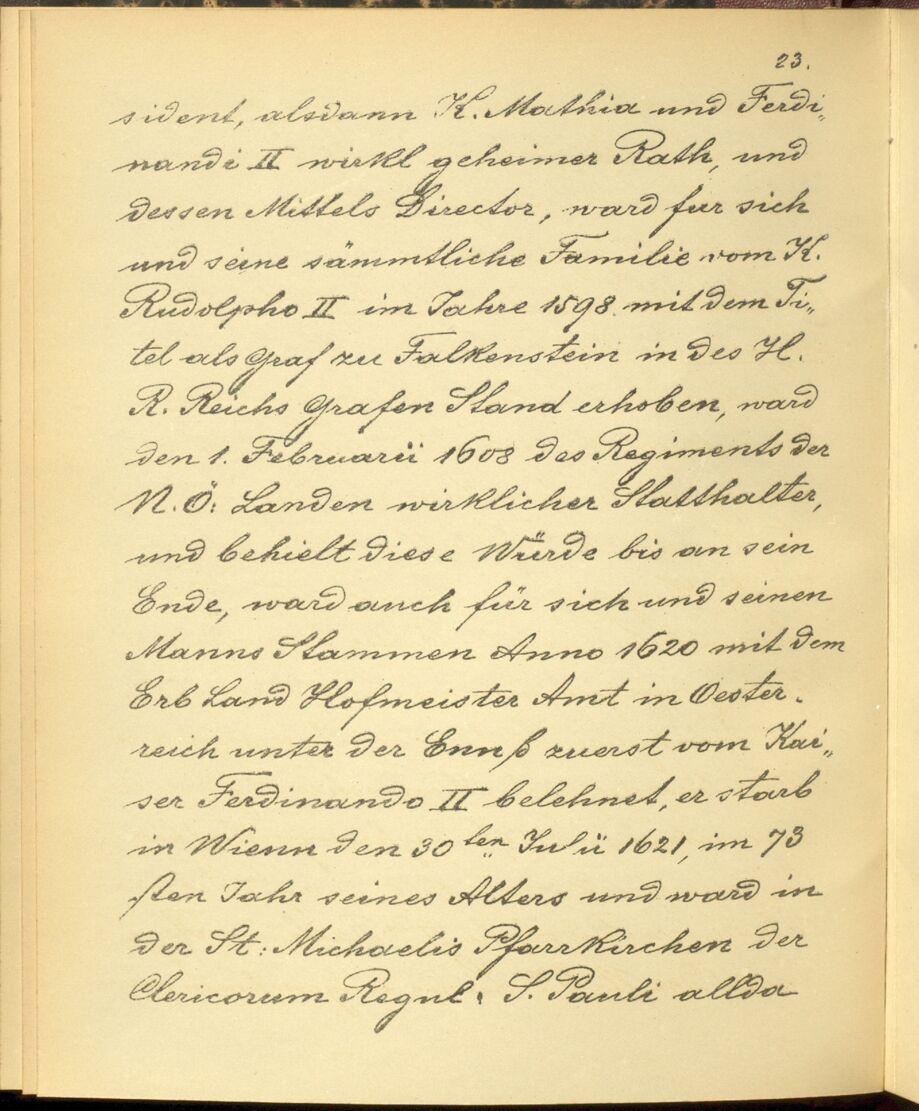 23.
sident, alsdann K. Mathia und Ferdi„
nandi II wirkl geheimer Rath, und
dessen Mittels Director, ward fur sich
und seine sämmtliche Familie vom K.
Rudolpho II im Jahre 1598. mit dem Ti„
tel als Graf zu Falkenstein in des H.
R. Reichs Grafen Stand erhoben, ward
den 1. Februarii 1608 des Regiments der
N. Ö: Landen wirklicher Statthalter,
und behielt diese Würde bis an sein
Ende, ward auch für sich und seinen
Manns Stammen Anno 1620 mit dem
Erb Land Hofmeister Amt in Oester-
reich unter der Ennß zuerst vom Kai„
ser Ferdinando II belehnet, er starb
in Wienn den 30ten Julii 1621, im 73
sten Jahr seines Alters und ward in
der St: Michaelis Pfarrkirchen der
Clericorum Regul: S. Pauli allda